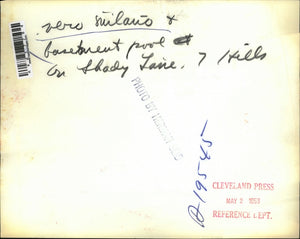 vero milano &
basement pool
on Shady Lane. 7 Hills
PHOTO BY
A19545
CLEVELAND PRESS
MAY 2 1953
REFERENCE DEPT.